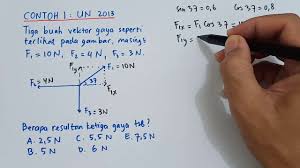 CONTOH 1 : UN 2013
Tiga buah vektor gaya seperti
terlihat pada gambar, masing²
F₁ = 10N, F₂ = 4N, F₃ = 3N
F₁ = 10N
F₂ = 4N
37
F₁x
F₃ = 3N
Berapa resultan ketiga gaya tsb?
A. 2,5N C. 5,5N E. 7,5N
B. 5N D. 6N
sen 37 = 0,6 Cos 37 = 0,8
F₁x = F₁ Cos 37 =
F₁y =